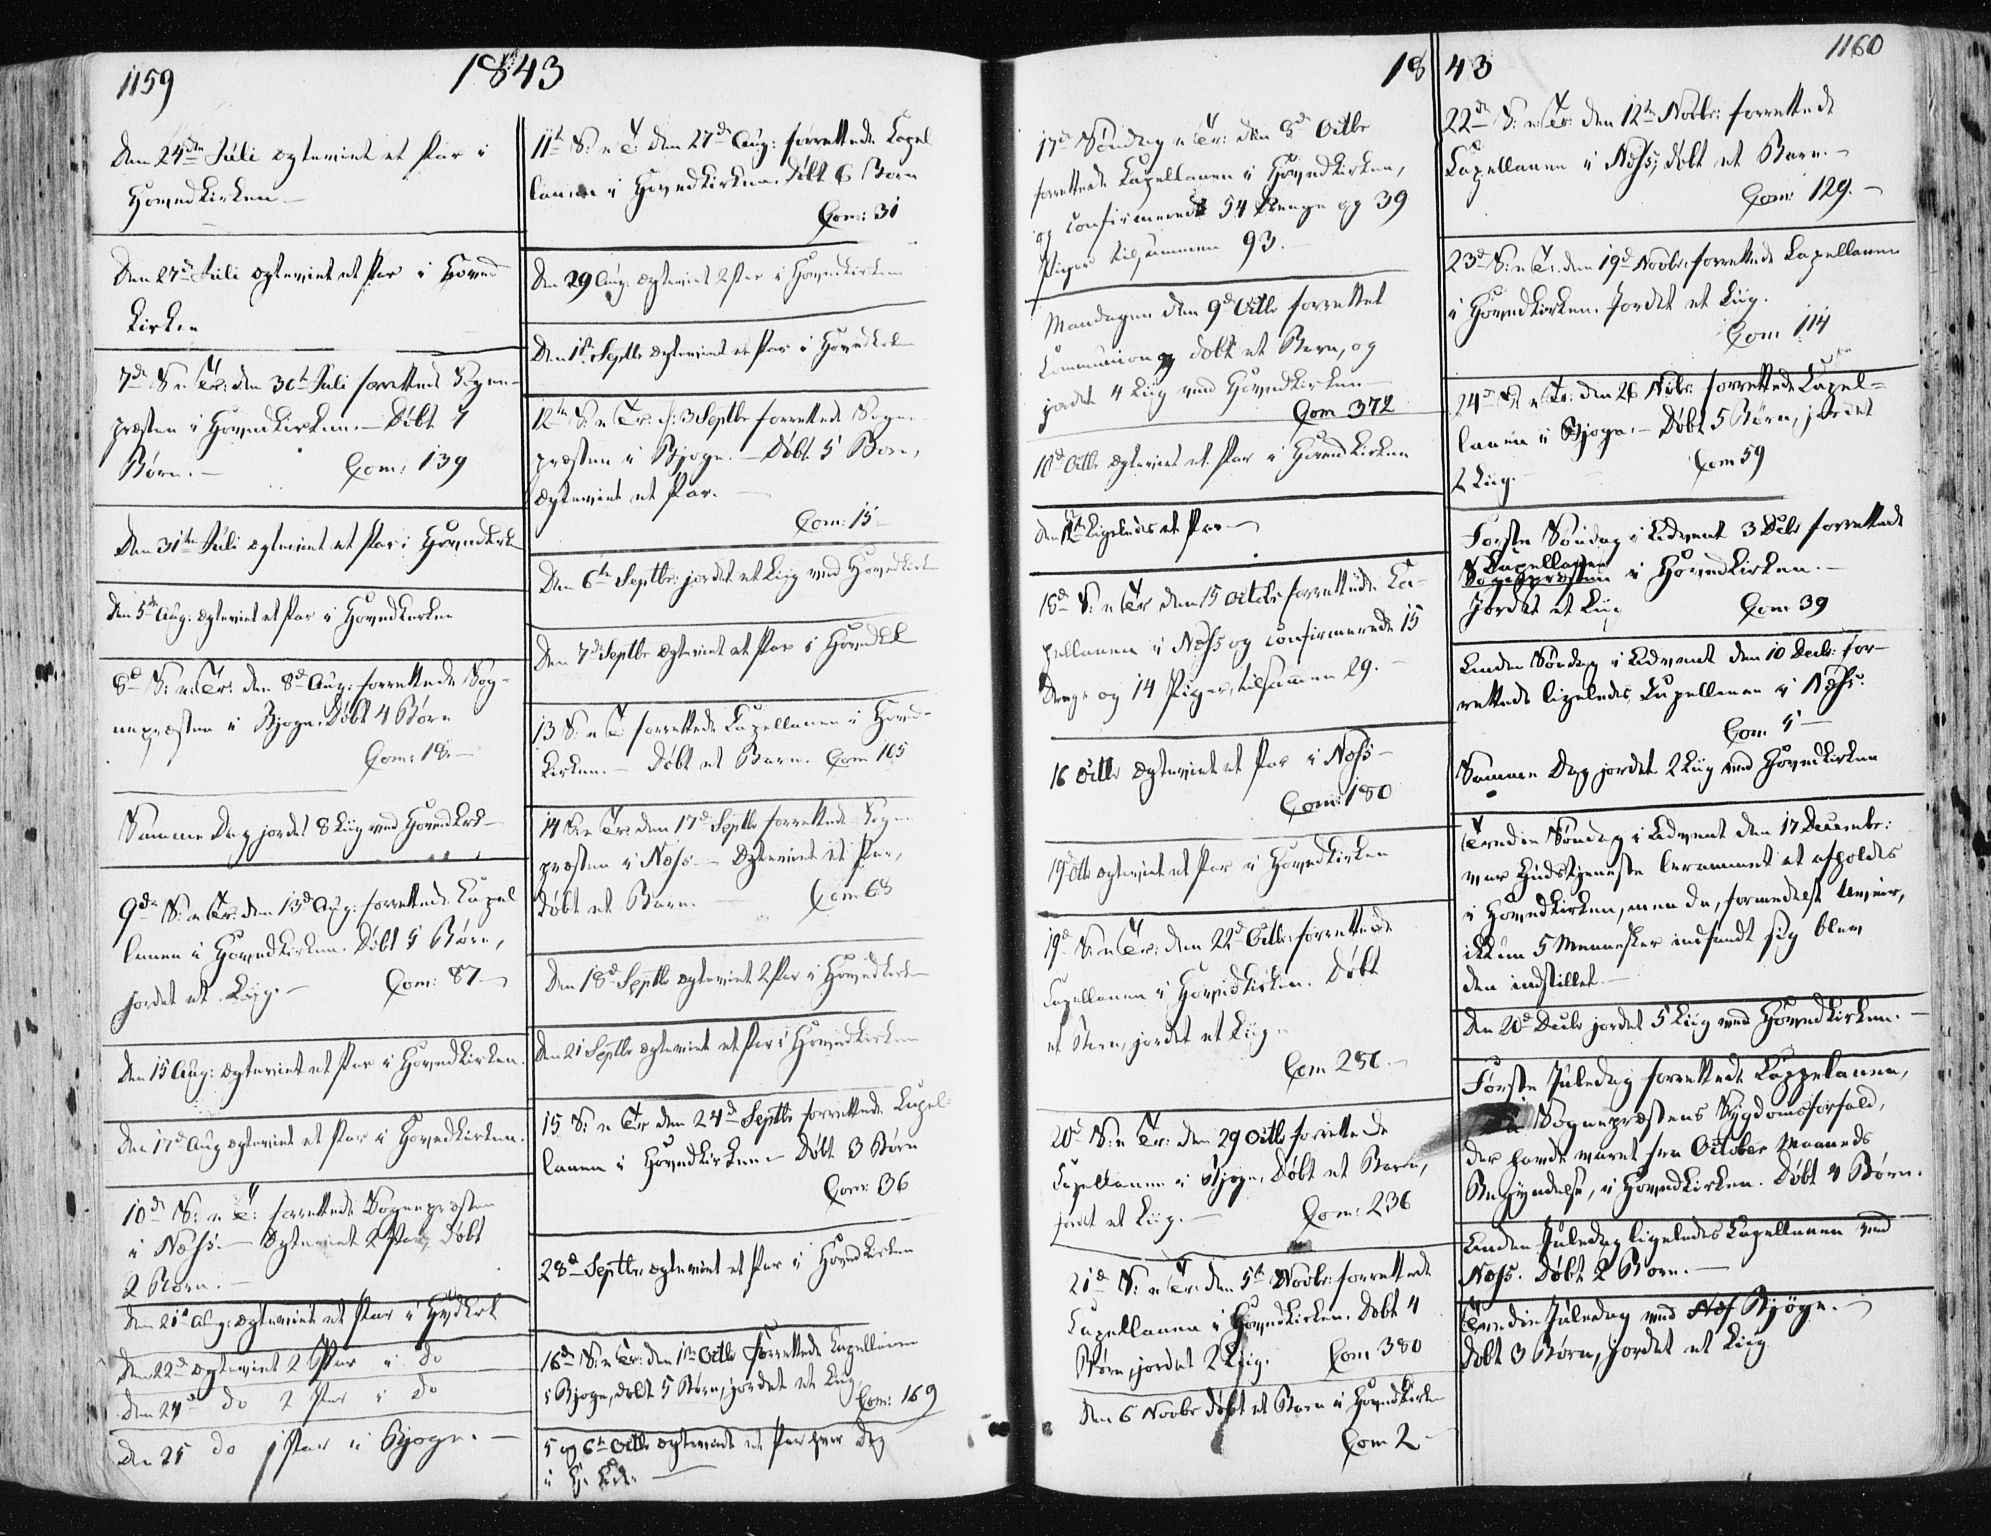 1159
1843
Den 24de Juli ægteviet et Par i
Hovedkirken
Den 27de Juli ægteviet et Par i Hoved
kirken
7de S. e. Tr: den 30te Juli forrettede Sogne-
præsten i Hovedkirken. – Døbt 7
Børn. – Com: 139
Den 31te Juli ægteviet et Par i Hovedkirk
Den 5te Aug: ægteviet et Par i Hovedkirken
8de S: e: Tr: den 8de Aug: forrettede Sog-
nepræsten i Bjogn. Døbt 4 Børn
Com: 18. –
Samme Dag jordet 8 Liig ved Hovedkrk –
9de S: e: Tr: den 13de Aug: forrettede Capel
lanen i Hovedkirken. Døbt 5 Børn,
jordet et Liig. – Com: 87 –
Den 15 Aug: ægteviet et Par i Hovedkirken.
Den 17de Aug ægteviet et Par i Hovedkirken.
10de S: e T: forrettede Sognepræsten
i Næss. – Ægteviet 2 Par, Døbt
2 Børn. –
Den 21de Aug: ægteviet et Par i Hvdkrk
Den 22de ægteviet 2 Par i do
Den 24de do 2 Par i do
Den 25 do 1 Par i Bjogn. –
11te S: e T: den 27de Aug: forrettede Capel
lanen i Hovedkirken. Døbt 6 Børn
Com: 31
Den 29 Aug: ægteviet 2 Par i Hovedkirken
Den 1ste Septbr ægteviet et Par i Hovedkirken
12te S: e Tr: d: 3 Septbr forrettede Sogne-
præsten i Bjogn. – Døbt 5 Børn,
ægteviet et Par. –
Com: 15 –
Den 6te Septbr: jordet et Liig ved Hovedkirk
Den 7de Septbr ægteviet et Par i Hovedkk
13 S: e T: forrettede Capellanen i Hoved-
kirken. – Døbt et Barn. Com 105
14 S: e Tr: den 17de Septbr forrettede Sogne
præsten i Næss. – Ægteviet et Par,
døbt et Barn. – Com 68
Den 18de Septbr ægteviet 2 Par i Hovedkirken
Den 21 Septbr ægteviet et Par i Hovedkirken
15 S: e Tr den 24de Septbr forrettede Capel-
lanen i Hovedkirken – Døbt 3 Børn
Com: 36
28de Septbr: ægteviet et Par i Hovedkirken
16de S: e Tr: den 1ste Octbr forrettede Capellanen
i Bjogn, døbt 5 Børn, jordet et Liig,
Com: 169
5 og 6te Octbr ægteviet et Par hver Dag
i H: Kirk. –
1843
1160
17de Søndag e Tr: den 8de Octbr
forrettede Capellanen i Hovedkirken,
og confirmerede 54 Drenge og 39
Piger tilsammen 93. –
Mandagen den 9de Octbr forrettet
Communion og døbt et Barn, og
jordet 4 Liig ved Hovedkirken –
Com 372
10de Octbr ægteviet et Par i Hovedkirken
Den 12te Ligeledes et Par –
18de S: e Tr den 15 Octbr forrettede Ca-
pellanen i Næss og confirmerede 15
Drenge og 14 Piger, tilsammen 29. –
16 Octbr ægteviet et Par i Næss –
Com: 180
19de Octbr ægteviet et Par i Hovedkirken
19de S: e Tr: den 22de Octbr: forrettede
Capellanen i Hovedkirken. Døbt
et Barn, jordet et Liig.
Com 256. –
20de S: e Tr: den 29 Octbr forrettede
Capellanen i Bjogn. Døbt et Barn,
jordet et Liig. – Com: 236
21de S: e Tr: den 5te Novbr: forrettede
Capellanen i Hovedkirken. Døbt 4
Børn, jordet 2 Liig. Com 380
Den 6 Novbr døbt et Barn i Hovedkirken
Com 2 –
22de S: e: Tr: den 12te Novbr: forrettede
Capellanen i Næss, døbt et Barn. –
Com: 129. –
23de S: e Tr: den 19de Novbr: forrettede Capellanen
i Hovedkirken. Jordet et Liig.
Com 114
24de S: e Tr: den 26 Novbr: forrettede Capel-
lanen i Bjogn. – Døbt 5 Børn, jordet
2 Liig. – Com 59
Første Søndag i Advent 3 Decbr forrettede
Capellanen
Sognepræsten i Hovedkirken. –
Jordet et Liig Com: 39
Anden Søndag i Advent den 10 Decbr: for-
rettede ligeledes Capellanen i Næss.
Com 5 –
Samme Dag jordet 2 Liig ved Hovedkirken
Tredie Søndag i Advent den 17 Decembr:
var Gudstjeneste berammet at afholdes
i Hovedkirken, men da, formedelst Uveir,
ikkun 5 Mennesker indfandt sig blev
den indstillet. –
Den 20de Decbr jordet 5 Liig ved Hovedkirken. –
Første Juledag forrettede Cappelanen,
i Sognepræstens Sygdomsforfald,
der havde varet fra October Maaneds
Begyndelse, i Hovedkirken. Døbt 4 Børn.
Anden Juledag ligeledes Capellanen ved
Næss. Døbt 2 Børn. –
Tredie Juledag ved Næs Bjögn. –
Døbt 3 Børn, jordet et Liig